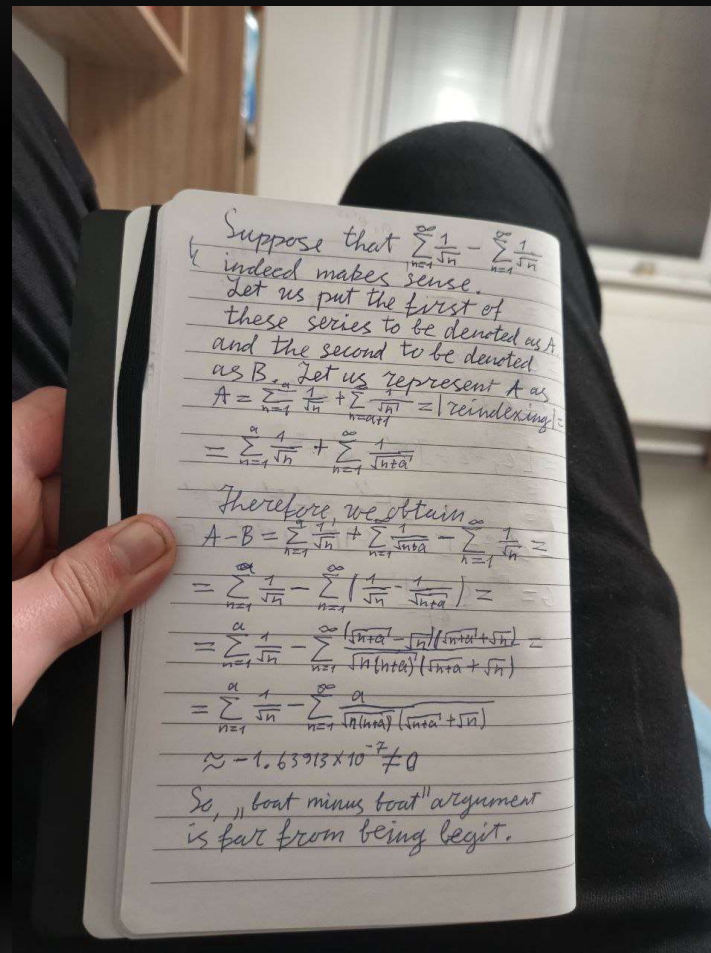 Suppose that ∑_{n=1}^{∞} 1/√n - ∑_{n=1}^{∞} 1/√n
indeed makes sense.
Let us put the first of
these series to be denoted as A
and the second to be denoted
as B. Let us represent A as
A = ∑_{n=1}^{a} 1/√n + ∑_{n=a+1}^{∞} 1/√n = |reindexing| =
= ∑_{n=1}^{a} 1/√n + ∑_{n=1}^{∞} 1/√(n+a)
Therefore, we obtain
A-B = ∑_{n=1}^{a} 1/√n + ∑_{n=1}^{∞} 1/√(n+a) - ∑_{n=1}^{∞} 1/√n =
= ∑_{n=1}^{a} 1/√n - ∑_{n=1}^{∞} (1/√n - 1/√(n+a)) =
= ∑_{n=1}^{a} 1/√n - ∑_{n=1}^{∞} (√(n+a) - √n)(√(n+a) + √n) / √(n(n+a)) (√(n+a) + √n) =
= ∑_{n=1}^{a} 1/√n - ∑_{n=1}^{∞} a / √(n(n+a)) (√(n+a) + √n)
≈ -1.63913×10^{-7} ≠ 0
So, „boat minus boat" argument
is far from being begit.